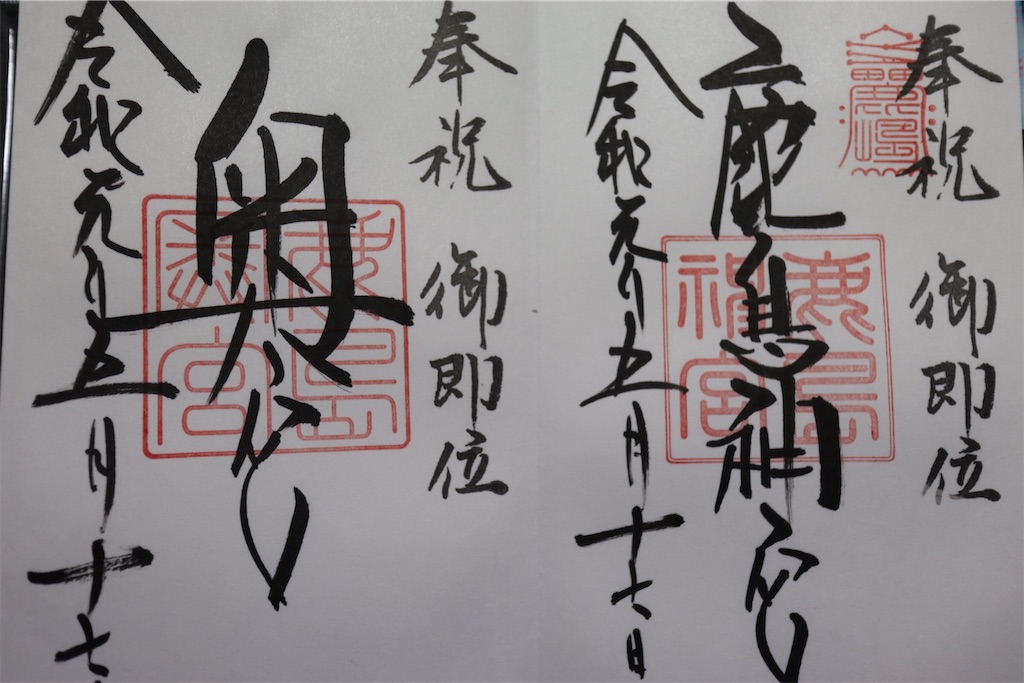 奉祝 御即位
鹿島神宮
鹿島
神宮
令和元年五月十七日
奉祝 御即位
奥宮
令和元年五月十七